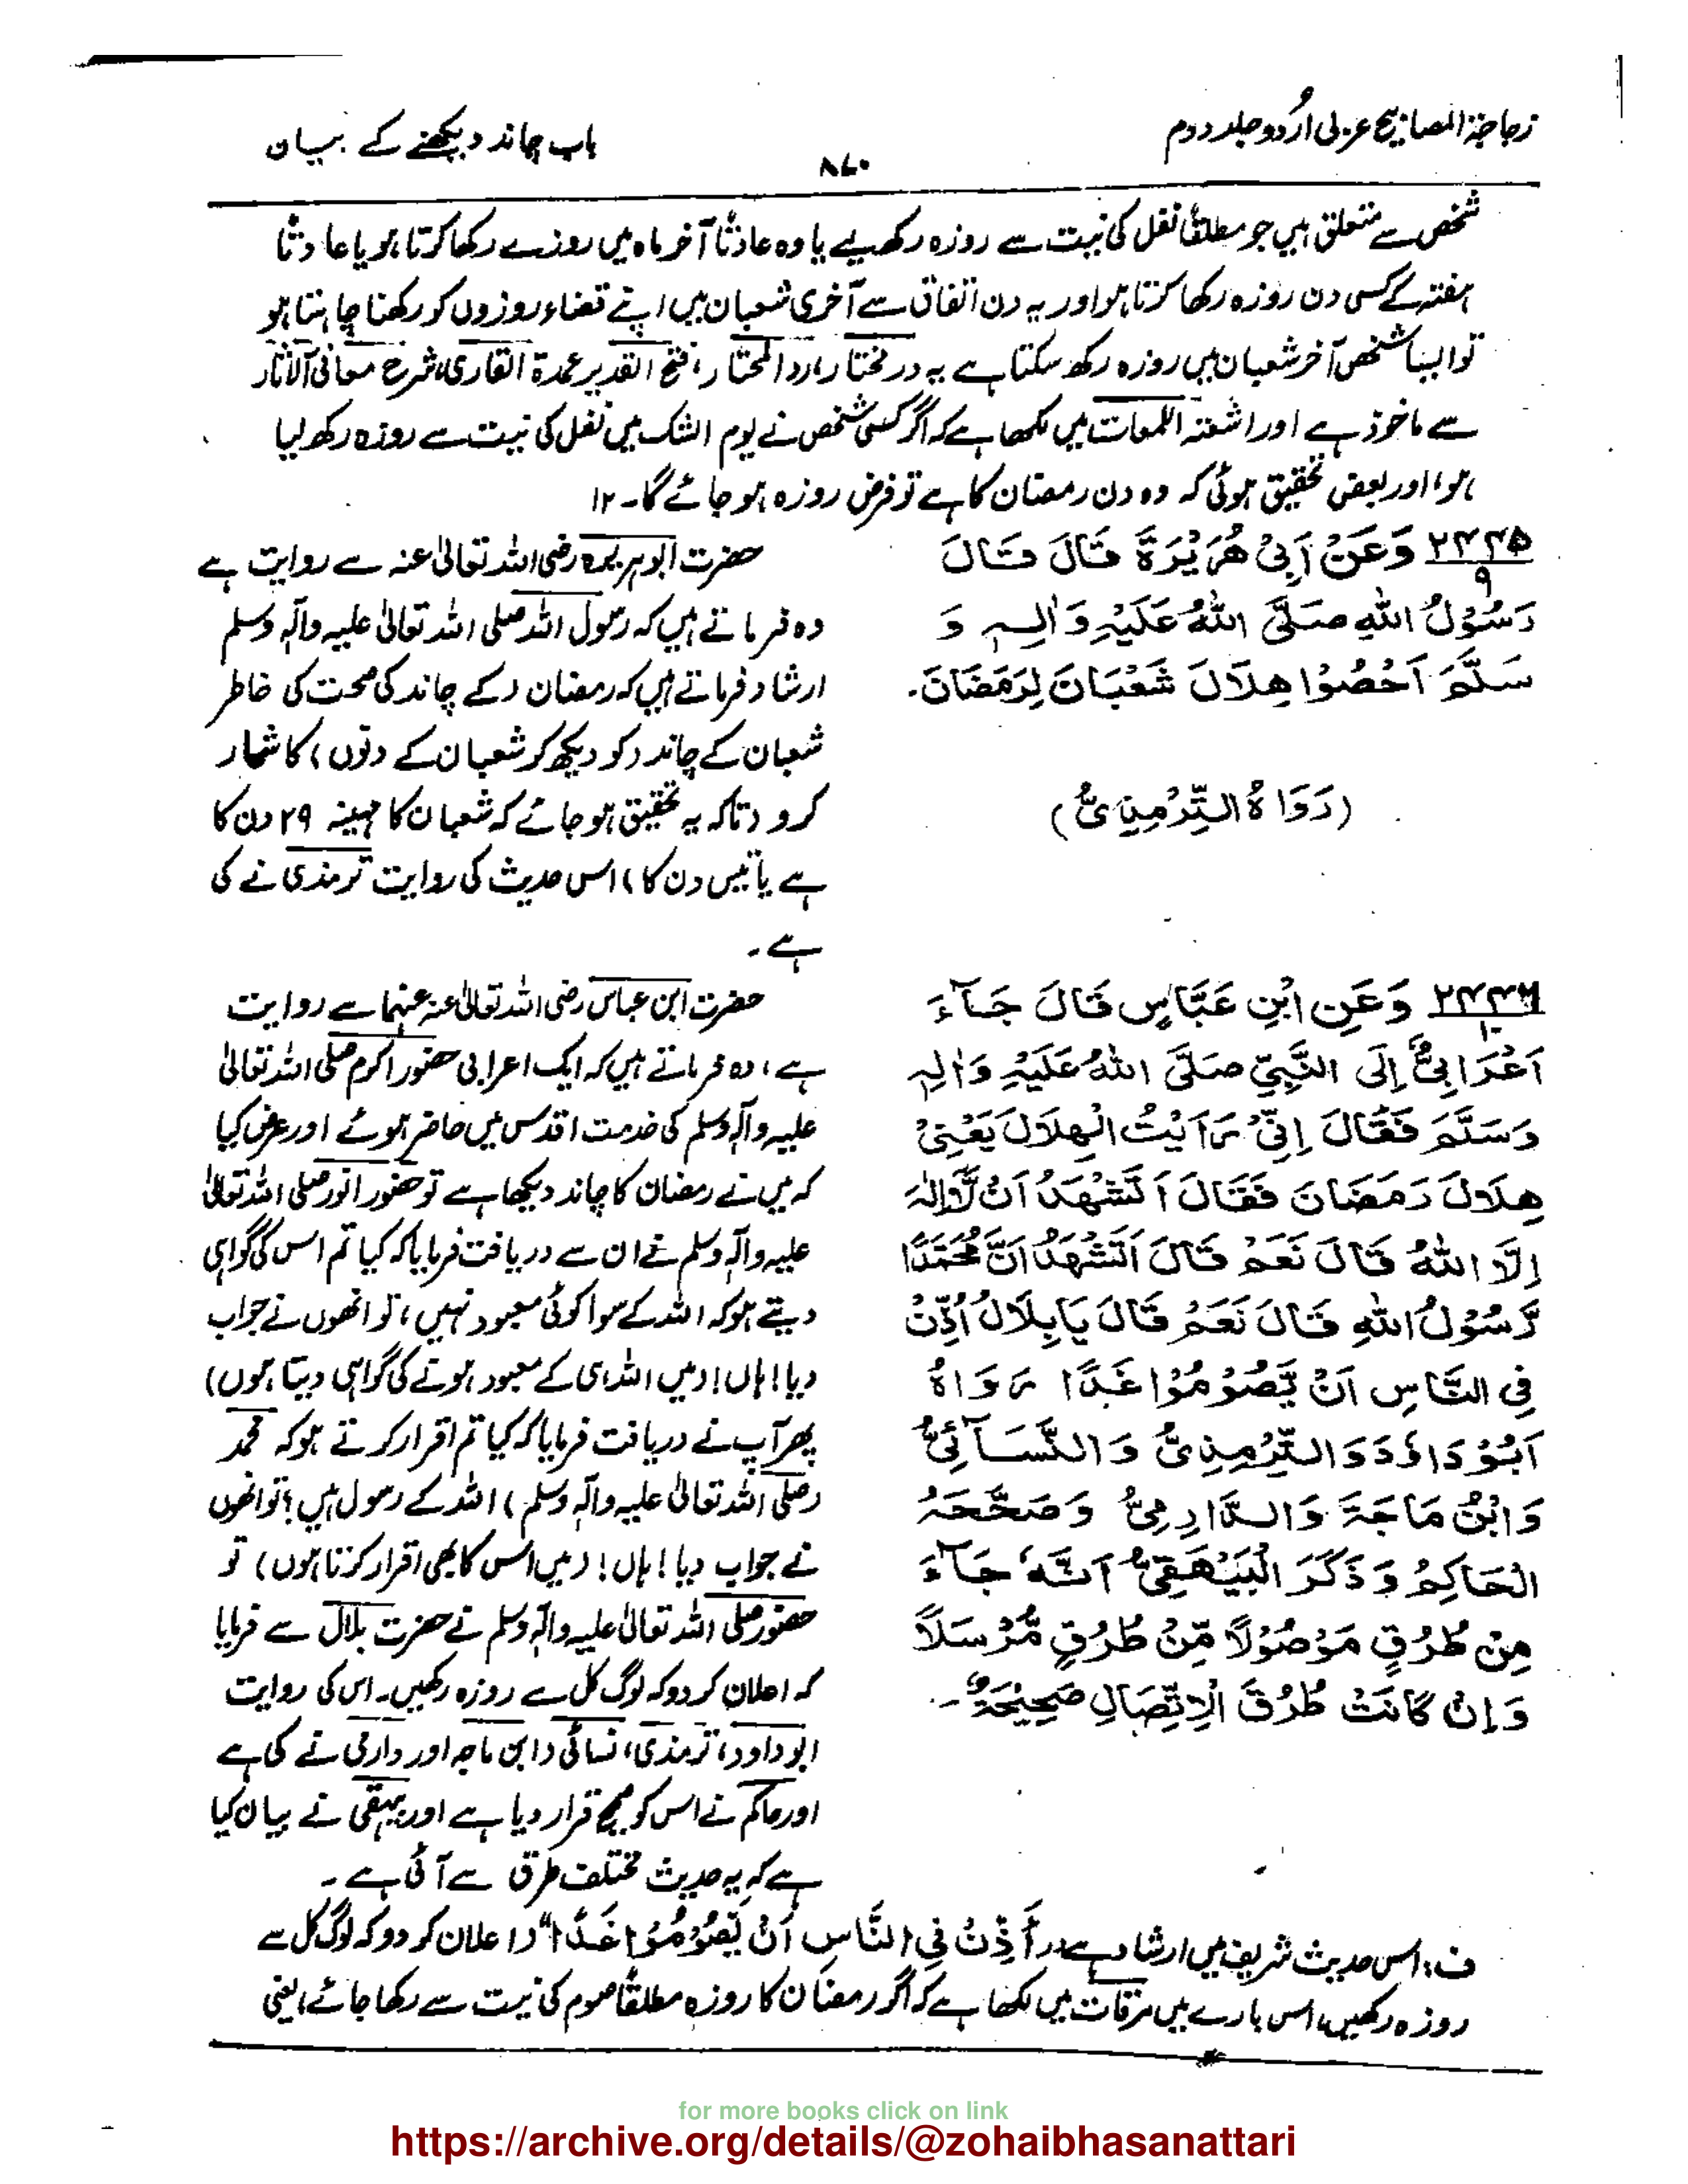 زجاجۃ المصابیح عربی اُردو جلد دوم
۸۷۰
باب چاند دیکھنے کے بیان
شخص سے متعلق ہیں جو مطلقاً نفل کی نیت سے روزہ رکھے یا وہ عادتاً آخر ماہ میں روزے رکھا کرتا ہو یا عادتاً
ہفتہ کے کسی دن روزہ رکھا کرتا ہو اور یہ دن اتفاق سے آخری شعبان میں اپنے قضاء روزوں کو رکھنا چاہتا ہو
تو ایسا شخص آخر شعبان میں روزہ رکھ سکتا ہے یہ در مختار، رد المحتار، فتح القدیر عمدۃ القاری، شرح معانی الآثار
سے ماخوذ ہے اور اشعۃ اللمعات میں لکھا ہے کہ اگر کسی شخص نے یوم الشک میں نفل کی نیت سے روزہ رکھ لیا
ہو، اور بعض تحقیق ہوئی کہ وہ دن رمضان کا ہے تو فرض روزہ ہو جائے گا۔ ۱۲
۲۴۴۵
۹
وَعَنْ اَبِیْ هُرَیْرَةَ قَالَ قَالَ
رَسُوْلُ اللهِ صَلَّى اللهُ عَلَيْهِ وَاٰلِهٖ وَ
سَلَّمَ اَحْصُوْا هِلَالَ شَعْبَانَ لِرَمَضَانَ۔
(رَوَاهُ التِّرْمِذِیُّ)
حضرت ابوہریرہ رضی اللہ تعالیٰ عنہ سے روایت ہے
وہ فرماتے ہیں کہ رسول اللہ صلی اللہ تعالیٰ علیہ وآلہ وسلم
ارشاد فرماتے ہیں کہ رمضان (کے چاند کی صحت کی خاطر
شعبان کے چاند (کو دیکھ کر شعبان کے دنوں) کا شمار
کرو (تاکہ یہ تحقیق ہو جائے کہ شعبان کا مہینہ ۲۹ دن کا
ہے یا تیس دن کا) اس حدیث کی روایت ترمذی نے کی
ہے۔
۲۴۴۶
۱۰
وَعَنِ ابْنِ عَبَّاسٍ قَالَ جَآءَ
اَعْرَابِیٌّ اِلَى النَّبِیِّ صَلَّى اللهُ عَلَيْهِ وَاٰلِهٖ
وَسَلَّمَ فَقَالَ اِنِّیْ رَاَیْتُ الْهِلَالَ یَعْنِیْ
هِلَالَ رَمَضَانَ فَقَالَ اَتَشْهَدُ اَنْ لَّا اِلٰهَ
اِلَّا اللهُ قَالَ نَعَمْ قَالَ اَتَشْهَدُ اَنَّ مُحَمَّدًا
رَّسُوْلُ اللهِ قَالَ نَعَمْ قَالَ یَا بِلَالُ اَذِّنْ
فِی النَّاسِ اَنْ یَّصُوْمُوْا غَدًا رَوَاهُ
اَبُوْ دَاؤدَ وَالتِّرْمِذِیُّ وَالنَّسَآئِیُّ
وَابْنُ مَاجَةَ وَالدَّارِمِیُّ وَصَحَّحَهُ
الْحَاكِمُ وَذَكَرَ الْبَیْهَقِیُّ اَنَّهٗ جَآءَ
مِنْ طُرُقٍ مَوْصُوْلًا مِّنْ طُرُقٍ مُّرْسَلًا
وَاِنْ كَانَتْ طُرُقُ الْاِتِّصَالِ صَحِیْحَةٌ۔
حضرت ابن عباس رضی اللہ تعالیٰ عنہ عنہما سے روایت
ہے، وہ فرماتے ہیں کہ ایک اعرابی حضور اکرم صلی اللہ تعالیٰ
علیہ وآلہ وسلم کی خدمت اقدس میں حاضر ہوئے اور عرض کیا
کہ میں نے رمضان کا چاند دیکھا ہے تو حضور انور صلی اللہ تعالیٰ
علیہ وآلہ وسلم نے ان سے دریافت فرمایا کہ کیا تم اس کی گواہی
دیتے ہو کہ اللہ کے سوا کوئی معبود نہیں، تو انھوں نے جواب
دیا! ہاں! (میں اللہ ہی کے معبود ہونے کی گواہی دیتا ہوں)
پھر آپ نے دریافت فرمایا کہ کیا تم اقرار کرتے ہو کہ محمد
(صلی اللہ تعالیٰ علیہ وآلہ وسلم) اللہ کے رسول ہیں؟ تو انھوں
نے جواب دیا! ہاں! (میں اس کا بھی اقرار کرتا ہوں) تو
حضور صلی اللہ تعالیٰ علیہ وآلہ وسلم نے حضرت بلال سے فرمایا
کہ اعلان کر دو کہ لوگ کل سے روزہ رکھیں۔ اس کی روایت
ابوداود، ترمذی، نسائی، ابن ماجہ اور دارمی نے کی ہے
اور حاکم نے اس کو صحیح قرار دیا ہے اور بیہقی نے بیان کیا
ہے کہ یہ حدیث مختلف طرق سے آئی ہے۔
ف: اس حدیث شریف میں ارشاد ہے "أَذِّنْ فِی النَّاسِ اَنْ یَّصُوْمُوْا غَدًا" (اعلان کر دو کہ لوگ کل سے
روزہ رکھیں، اس بارے میں مرقات میں لکھا ہے کہ اگر رمضان کا روزہ مطلقاً صوم کی نیت سے رکھا جائے، یعنی
for more books click on link
https://archive.org/details/@zohaibhasanattari